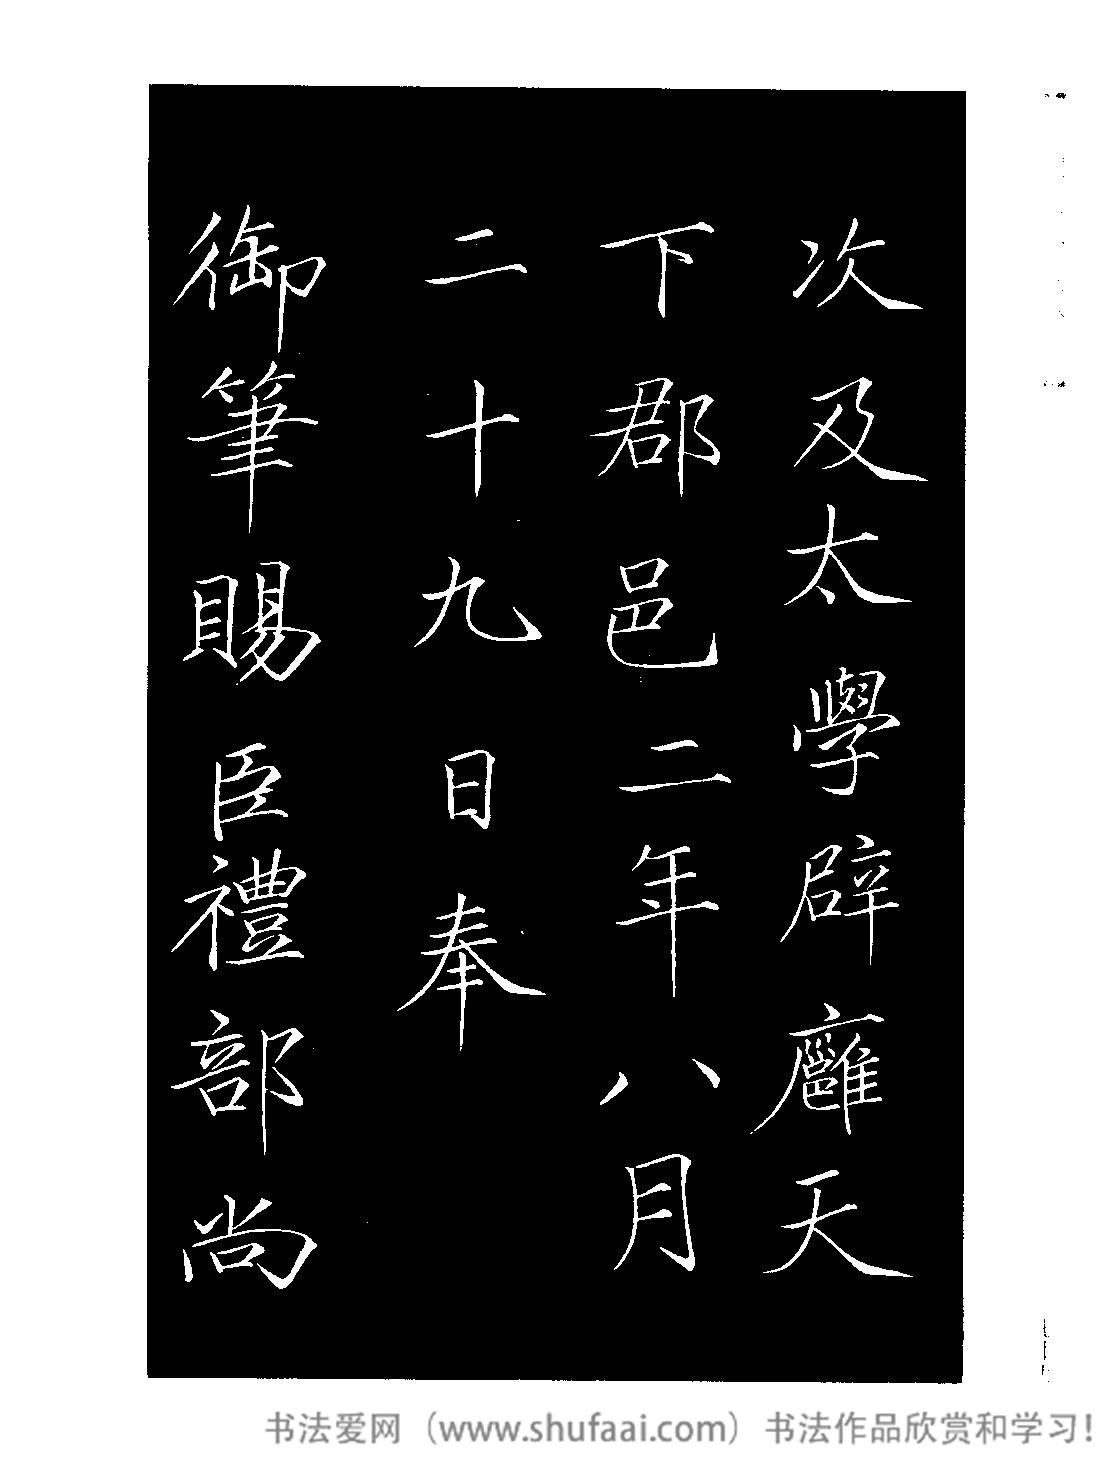 次及太學辟廱天
下郡邑二年八月
二十九日奉
御筆賜臣禮部尚
书法爱网（www.shufaai.com）书法作品欣赏和学习！